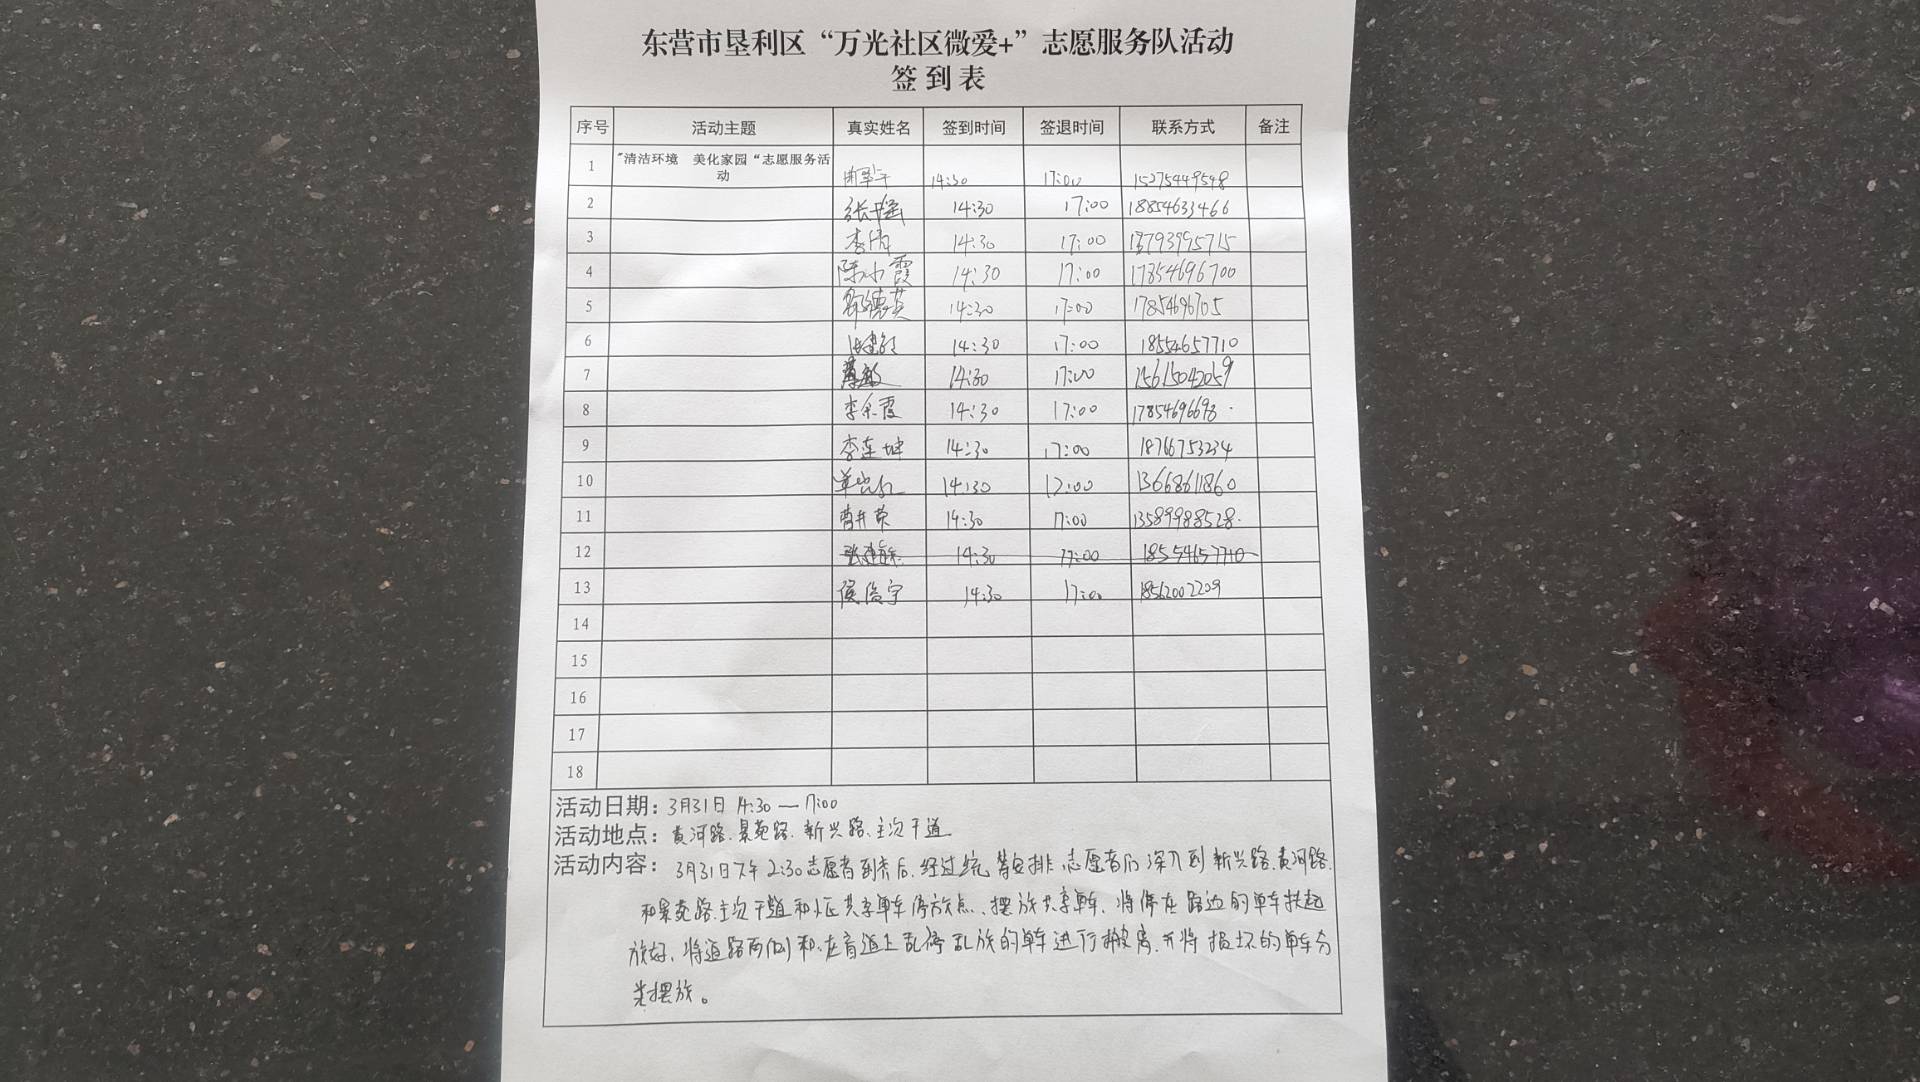 东营市垦利区“万光社区微爱+”志愿服务队活动
签到表
序号 活动主题 真实姓名 签到时间 签退时间 联系方式 备注
1 "清洁环境 美化家园“志愿服务活动 14:30 17:00 15275449548
2 张瑶 14:30 17:00 18854633466
3 李倩 14:30 17:00 13793995715
4 陈小霞 14:30 17:00 17854696700
5 郭德英 14:30 17:00 17854696705
6 14:30 17:00 18554657710
7 薄敏 14:30 17:00 15615042059
8 李乐霞 14:30 17:00 17854696698
9 李连坤 14:30 17:00 18766753234
10 14:30 17:00 13668611860
11 曹井荣 14:30 17:00 13589988528
12 张建敏 14:30 17:00 18554657710
13 侯俊宇 14:30 17:00 18562002209
14
15
16
17
18
活动日期：3月31日 14:30—17:00
活动地点：黄河路、景苑路、新兴路、主次干道
活动内容：3月31日下午2:30志愿者到齐后，经过统筹安排，志愿者们深入到新兴路、黄河路
和景苑路、主次干道和小区共享单车停放点、摆放共享单车，将停在路边的单车扶起
放好，将道路两侧和在盲道上乱停乱放的单车进行搬离，并将损坏的单车分
类摆放。